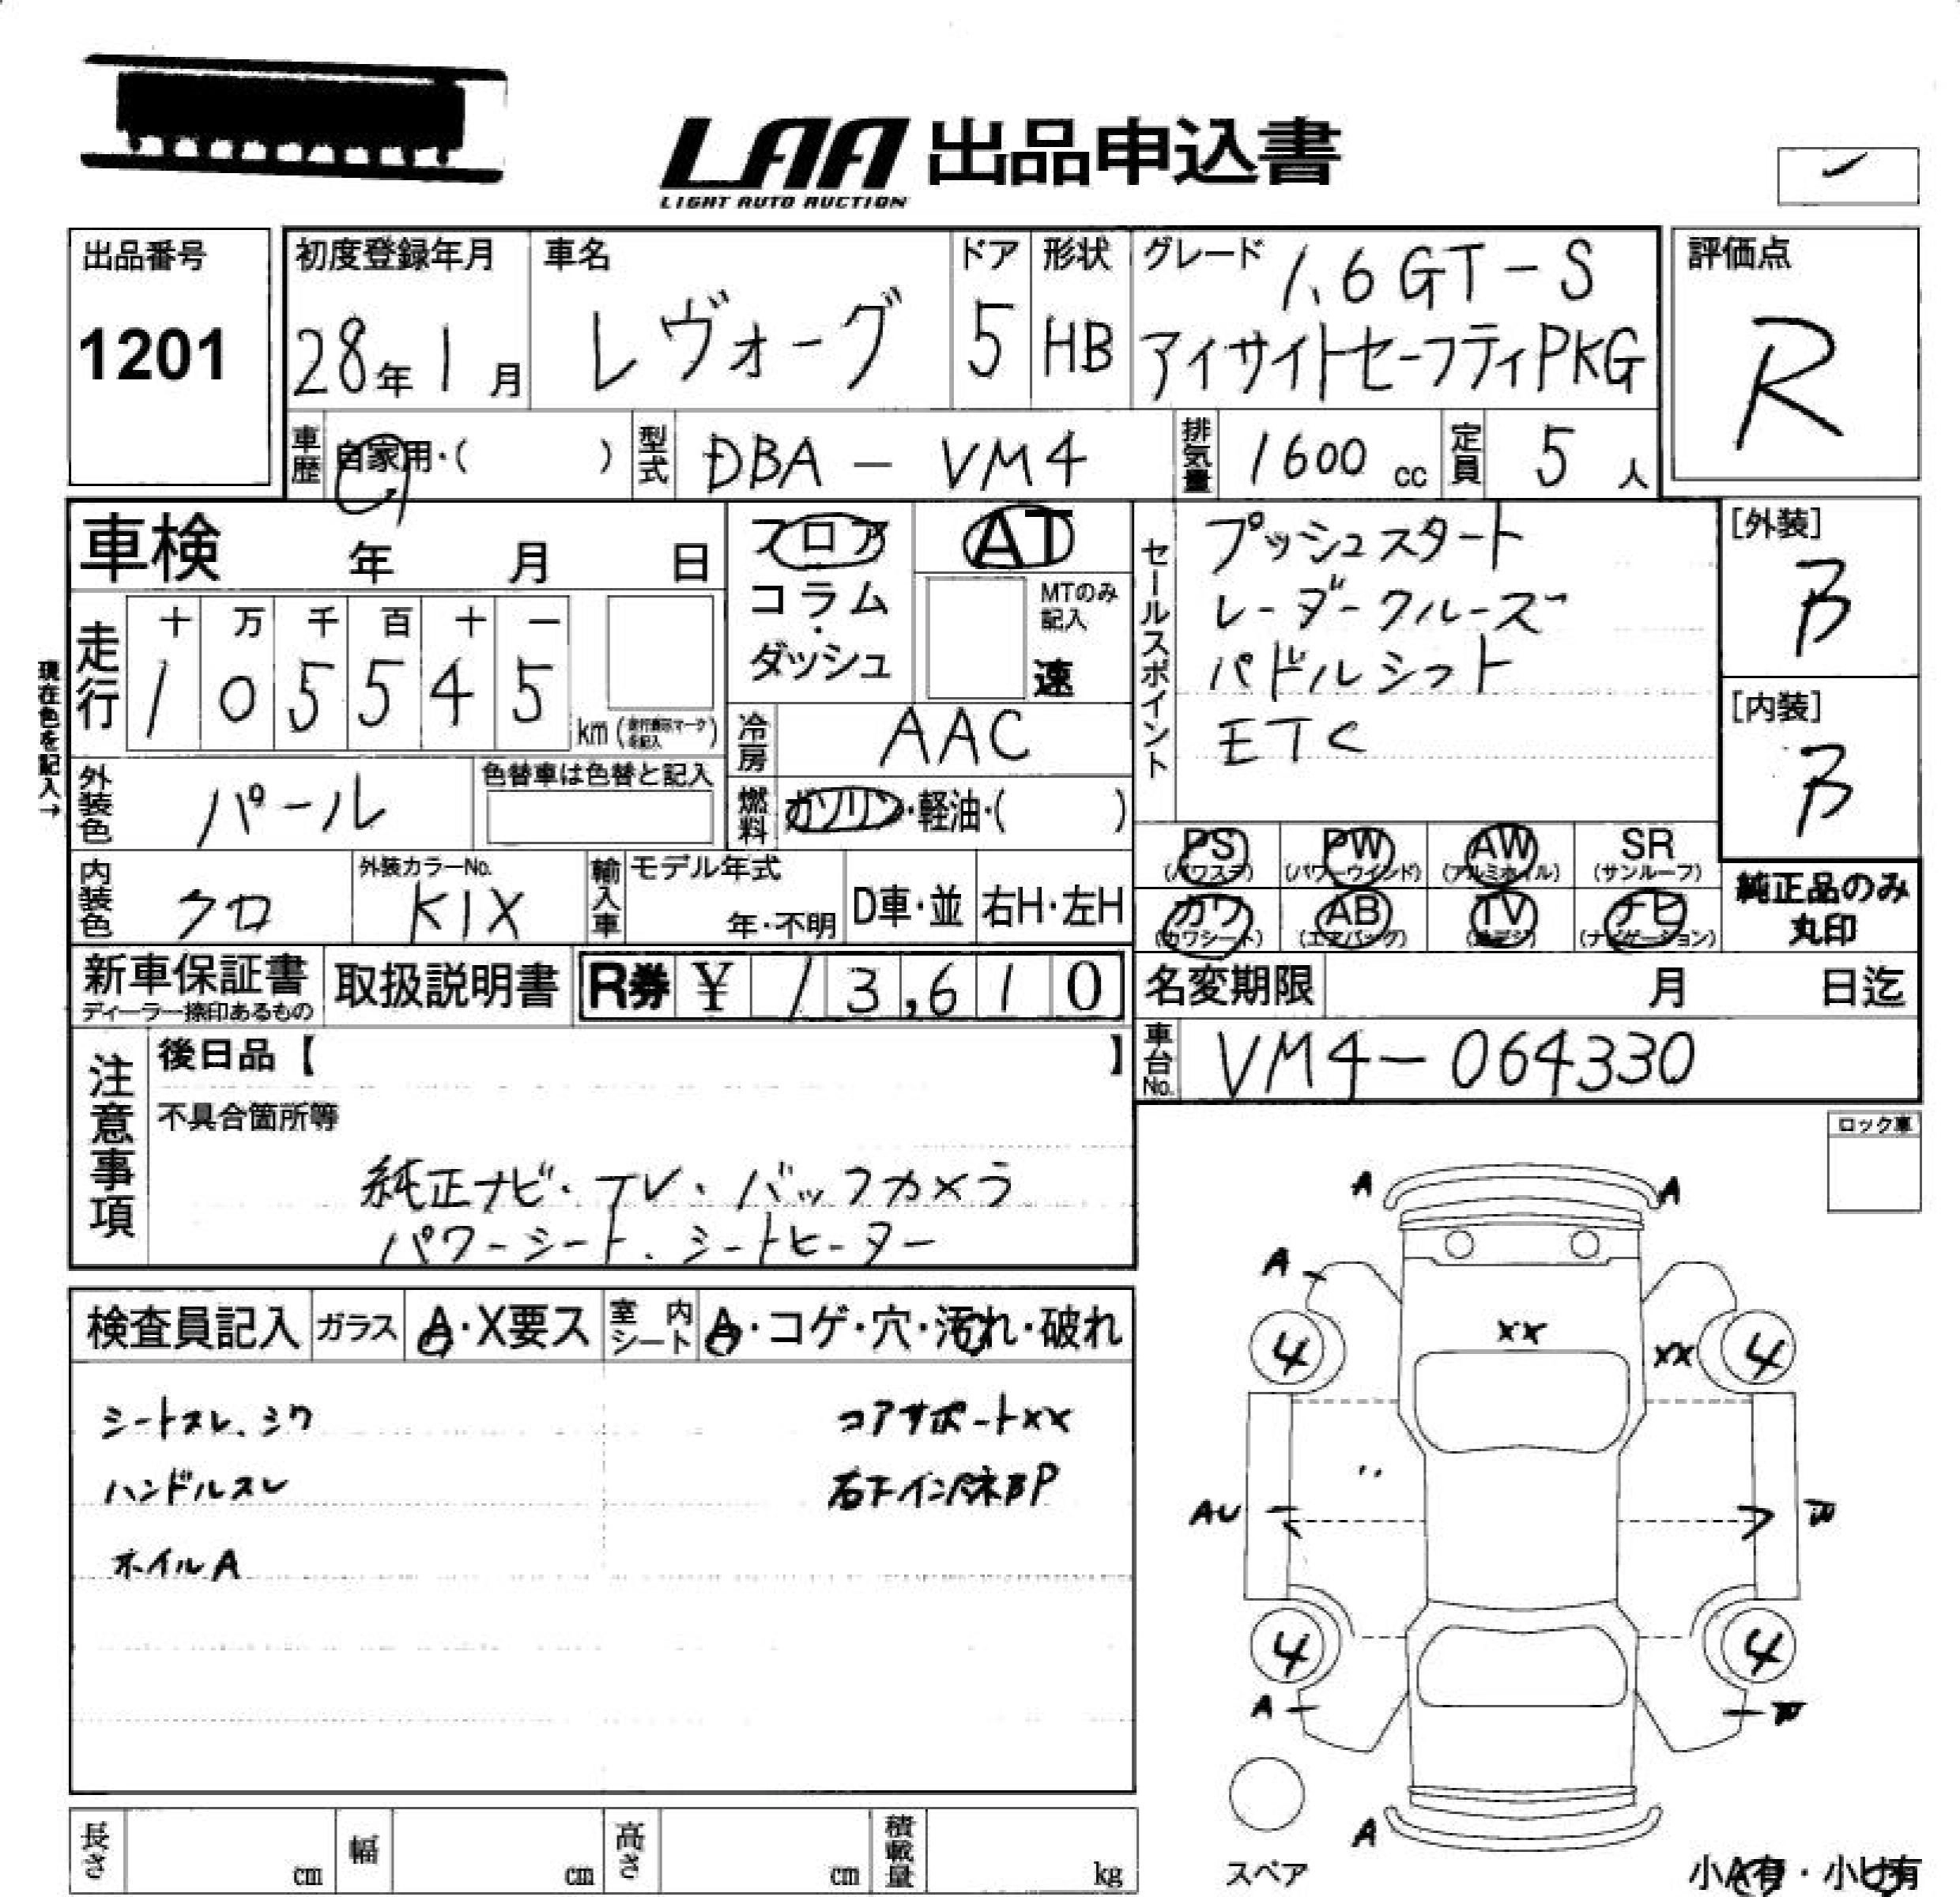 LAA 出品申込書
LIGHT AUTO AUCTION
出品番号
1201
初度登録年月
28年1月
車名
レヴォーグ
ドア
5
形状
HB
グレード
1.6GT-S
アイサイトセーフティPKG
評価点
R
車歴
自家用・( )
型式
DBA-VM4
排気量
1600cc
定員
5人
車検 年 月 日
フロア
コラム・
ダッシュ
AT
MTのみ記入
速
セールスポイント
プッシュスタート
レーダークルーズ
パドルシフト
ETC
[外装]
B
[内装]
B
現在色を記入→
走行
十 万 千 百 十 一
1 0 5 5 4 5
km
冷房
AAC
燃料
ガソリン・軽油・( )
外装色
パール
色替車は色替と記入
内装色
クロ
外装カラーNo.
K1X
輸入車
モデル年式
年・不明
D車・並
右H・左H
PS PW AW SR
(パワステ) (パワーウインド) (アルミホイル) (サンルーフ)
カワ AB TV ナビ
(カワシート) (エアバッグ) (地デジ) (ナビゲーション)
純正品のみ
丸印
新車保証書
ディーラー捺印あるもの
取扱説明書
R券 ¥ 13,610
名変期限 月 日迄
車台No.
VM4-064330
注意事項
後日品【 】
不具合箇所等
純正ナビ・TV・バックカメラ
パワーシート、シートヒーター
ロック車
検査員記入
ガラス
A・X要ス
室内シート
A・コゲ・穴・汚れ・破れ
シートスレ、シワ
コアサポートXX
ハンドルスレ
ホイルA
A A
A
XX
4 XX 4
AU
4 4
A
A
スペア
小A有・小U有
長さ cm
幅 cm
高さ cm
積載量 kg